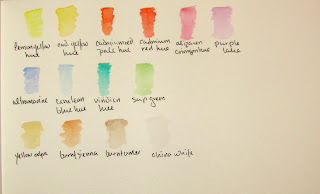 lemon yellow hue cad yellow hue cadmium red pale hue cadmium red hue alizarin crimson hue purple lake
ultramarine cerulean blue hue viridian hue sap green
yellow ochre burnt sienna burnt umber china white